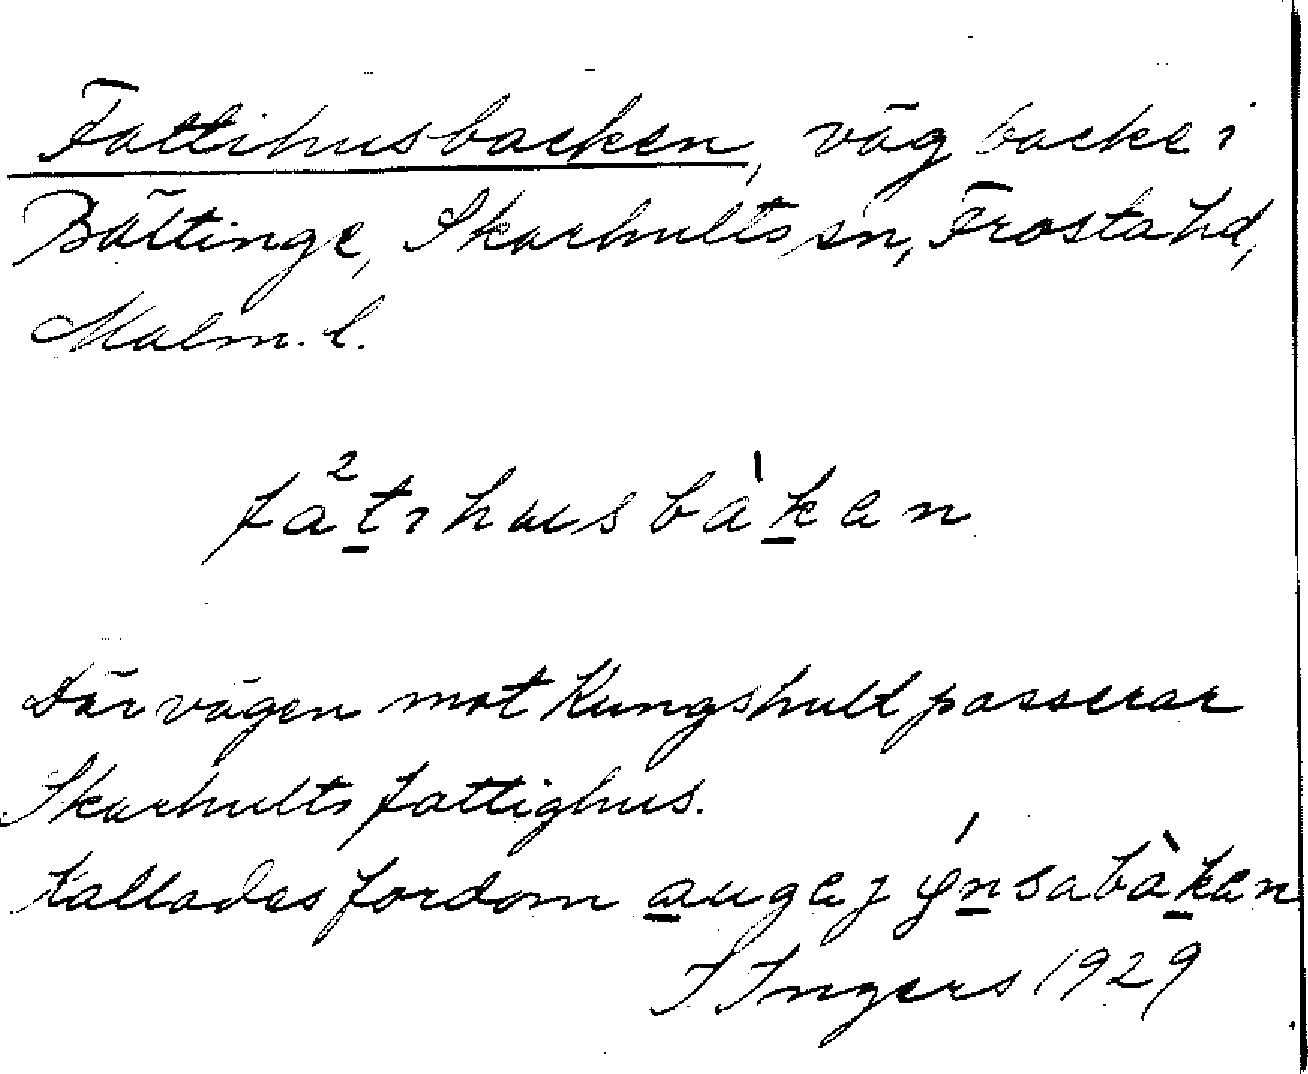 Fattihusbacken, vägbacke i
Bältinge, Skarhults sn, Frosta hd,
Malm. l.
fa²tihusbàkan
Där vägen mot Kungshult passerar
Skarhults fattighus.
Kallades fordom
I Ingers 1929